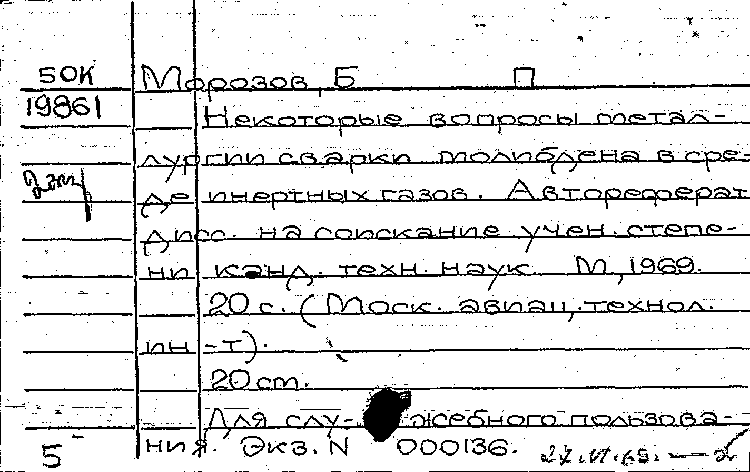 50К Морозов, Б П
19861 Некоторые вопросы метал-
лургии сварки молибдена в сре-
2 экз
де инертных газов. Автореферат
дисс. на соискание учен. степе-
ни канд. техн. наук М., 1969.
20 с. (Моск. авиац. технол.
ин-т).
20 см.
Для слу-жебного пользова-
5 ния. Экз. N 000136.